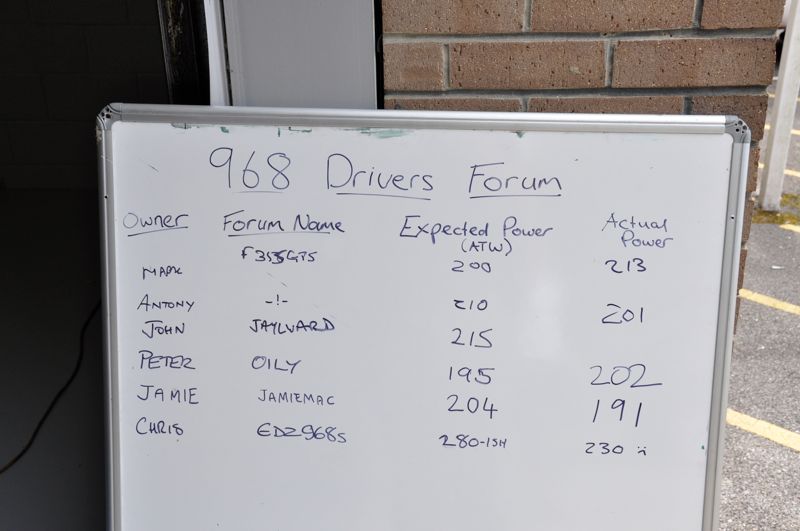 968 Drivers Forum
Owner Forum Name Expected Power (ATW) Actual Power
MARK F355GTS 200 213
ANTONY -!- 210 201
JOHN JAYLVARD 215
PETER OILY 195 202
JAMIE JAMIEMAC 204 191
CHRIS EDZ968s 280-ISH 230 :(